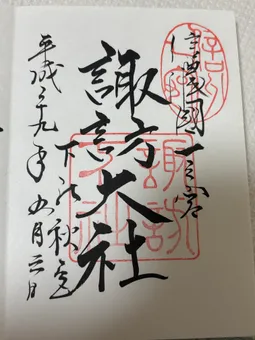 信濃國一之宮
諏方大社
下社秋宮
平成二九年五月三日